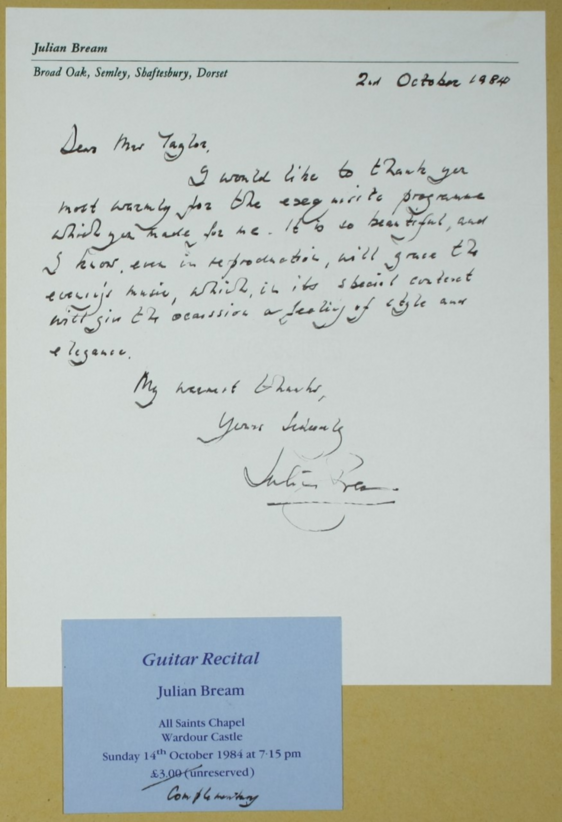 Julian Bream
Broad Oak, Semley, Shaftesbury, Dorset
2nd October 1984
Dear Mrs Taylor,
I would like to thank you
most warmly for the exequisite programme
which you made for me. It is so beautiful, and
I know, even in reproduction, will grace the
evening's music, which, in its special context
will give the ocassion a feeling of style and
elegance.
My warmest thanks,
Yours Sincerely
Julian Bream
Guitar Recital
Julian Bream
All Saints Chapel
Wardour Castle
Sunday 14th October 1984 at 7·15 pm
£3.00 (unreserved)
Complementary